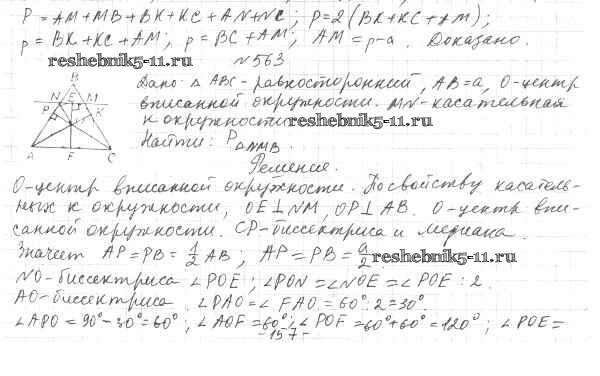 P = AM + MB + BK + KC + AN + NC; P = 2(BK + KC + AM);
p = BK + KC + AM; p = BC + AM; AM = p - a. Доказано.
reshebnik5-11.ru
№ 563
Дано: △ ABC - равносторонний, AB = a, O - центр
вписанной окружности. MN - касательная
к окружности
reshebnik5-11.ru
Найти: P△NMB.
B
N E M
P K
A F C
Решение.
O - центр вписанной окружности. По свойству касатель-
ных к окружности, OE ⊥ NM, OP ⊥ AB. O - центр впи-
санной окружности. CP - биссектриса и медиана.
Значит AP = PB = 1/2 AB, AP = PB = a/2.
reshebnik5-11.ru
NO - биссектриса ∠POE; ∠PON = ∠NOE = ∠POE : 2.
AO - биссектриса. ∠PAO = ∠FAO = 60° : 2 = 30°.
∠APO = 90° - 30° = 60°; ∠AOF = 60°; ∠POF = 60° + 60° = 120°; ∠POE =
- 157 -